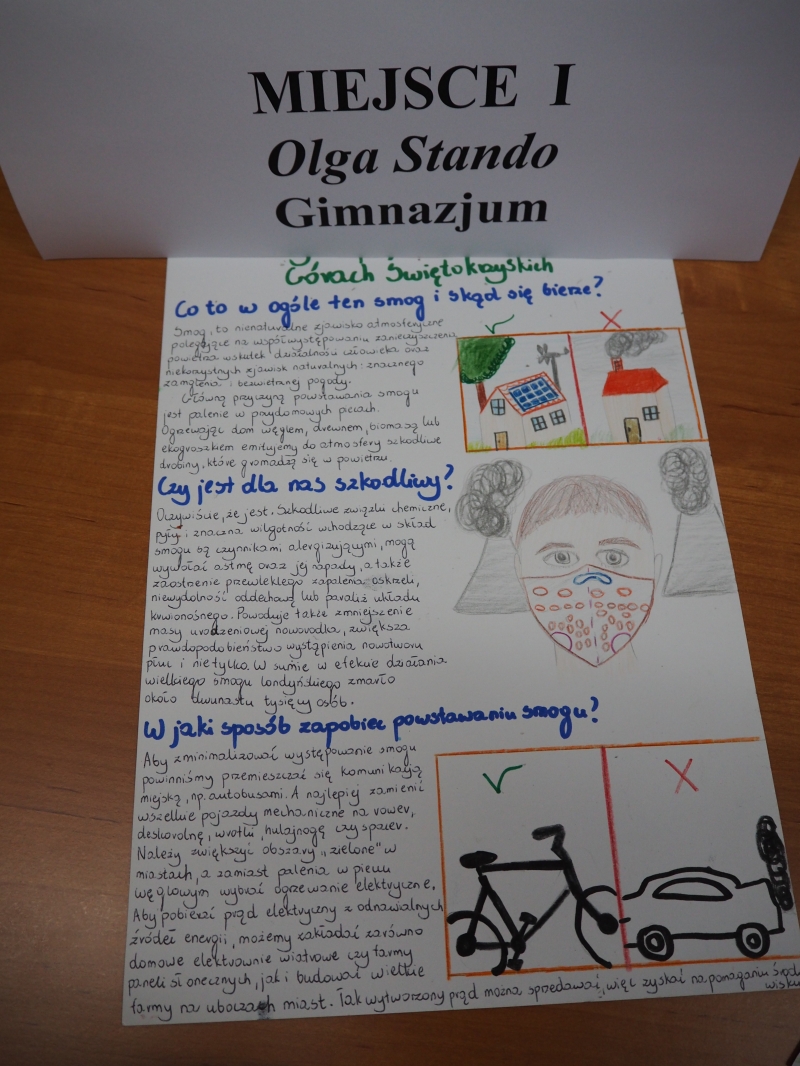 MIEJSCE I
Olga Stando
Gimnazjum
Górach Świętokrzyskich
Co to w ogóle ten smog i skąd się bierze?
Smog, to nienaturalne zjawisko atmosferyczne
polegające na współwystępowaniu zanieczyszczenia
powietrza wskutek działalności człowieka oraz
niekorzystnych zjawisk naturalnych: znacznego
zamglenia i bezwietrznej pogody.
Główną przyczyną powstawania smogu
jest palenie w przydomowych piecach.
Ogrzewając dom węglem, drewnem, biomasą lub
ekogroszkiem emitujemy do atmosfery szkodliwe
drobiny, które gromadzą się w powietrzu.
Czy jest dla nas szkodliwy?
Oczywiście, że jest. Szkodliwe związki chemiczne,
pyły i znaczna wilgotność wchodzące w skład
smogu są czynnikami alergizującymi, mogą
wywołać astmę oraz jej napady, a także
zaostrzenie przewlekłego zapalenia oskrzeli,
niewydolność oddechową lub paraliż układu
krwionośnego. Powoduje także zmniejszenie
masy urodzeniowej noworodka, zwiększa
prawdopodobieństwo wystąpienia nowotworu
płuc i nie tylko. W sumie w efekcie działania
wielkiego smogu londyńskiego zmarło
około dwunastu tysięcy osób.
W jaki sposób zapobiec powstawaniu smogu?
Aby zminimalizować występowanie smogu
powinniśmy przemieszczać się komunikacją
miejską, np. autobusami. A najlepiej zamienić
wszelkie pojazdy mechaniczne na rower,
deskorolkę, wrotki, hulajnogę czy spacer.
Należy zwiększyć obszary „zielone" w
miastach, a zamiast palenia w piecu
węglowym wybrać ogrzewanie elektryczne.
Aby pobierać prąd elektryczny z odnawialnych
źródeł energii, możemy zakładać zarówno
domowe elektrownie wiatrowe czy farmy
paneli słonecznych, jak i budować wielkie
farmy na uboczach miast. Tak wytworzony prąd można sprzedawać, więc zyskać na pomaganiu środo
wisku